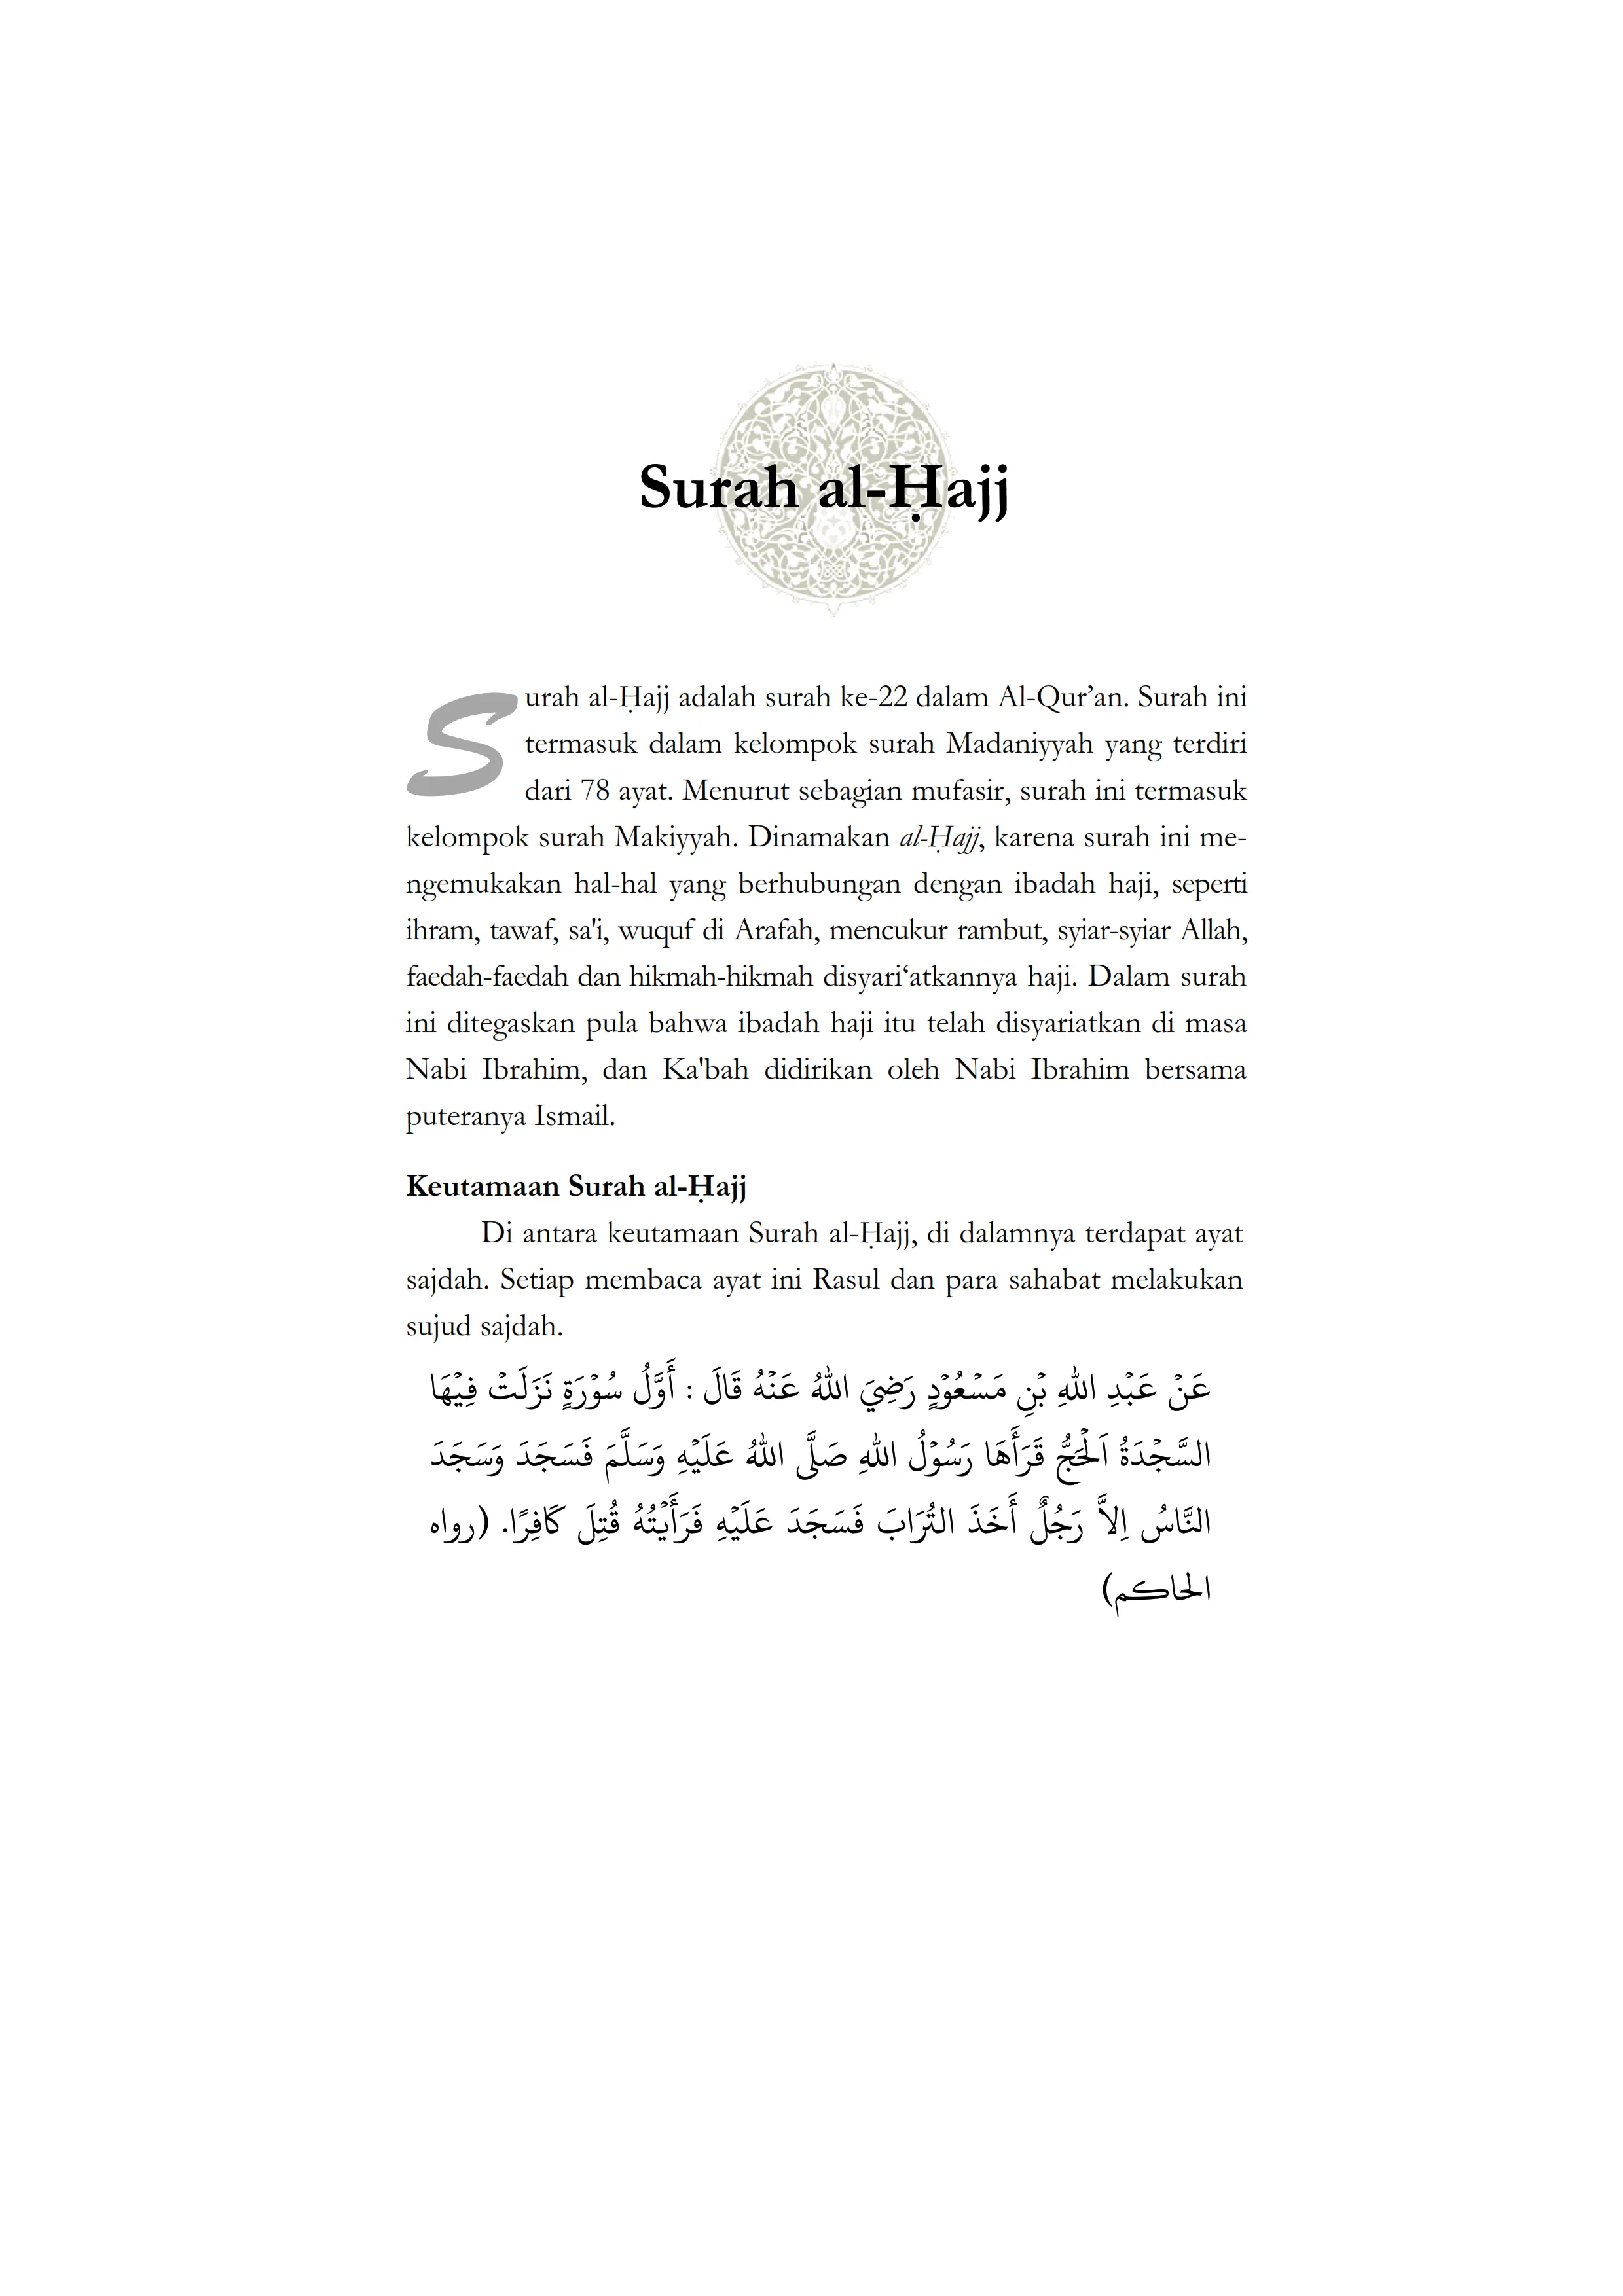 Surah al-Ḥajj
Surah al-Ḥajj adalah surah ke-22 dalam Al-Qur’an. Surah ini
termasuk dalam kelompok surah Madaniyyah yang terdiri
dari 78 ayat. Menurut sebagian mufasir, surah ini termasuk
kelompok surah Makiyyah. Dinamakan al-Ḥajj, karena surah ini me-
ngemukakan hal-hal yang berhubungan dengan ibadah haji, seperti
ihram, tawaf, sa'i, wuquf di Arafah, mencukur rambut, syiar-syiar Allah,
faedah-faedah dan hikmah-hikmah disyari‘atkannya haji. Dalam surah
ini ditegaskan pula bahwa ibadah haji itu telah disyariatkan di masa
Nabi Ibrahim, dan Ka'bah didirikan oleh Nabi Ibrahim bersama
puteranya Ismail.
Keutamaan Surah al-Ḥajj
Di antara keutamaan Surah al-Ḥajj, di dalamnya terdapat ayat
sajdah. Setiap membaca ayat ini Rasul dan para sahabat melakukan
sujud sajdah.
عَنْ عَبْدِ اللهِ بْنِ مَسْعُوْدٍ رَضِيَ اللهُ عَنْهُ قَالَ : أَوَّلُ سُوْرَةٍ نَزَلَتْ فِيْهَا
السَّجْدَةُ اَلْحَجُّ قَرَأَهَا رَسُوْلُ اللهِ صَلَّى اللهُ عَلَيْهِ وَسَلَّمَ فَسَجَدَ وَسَجَدَ
النَّاسُ اِلاَّ رَجُلٌ أَخَذَ التُرَابَ فَسَجَدَ عَلَيْهِ فَرَأَيْتُهُ قُتِلَ كَافِرًا. (رواه
الحاكم)